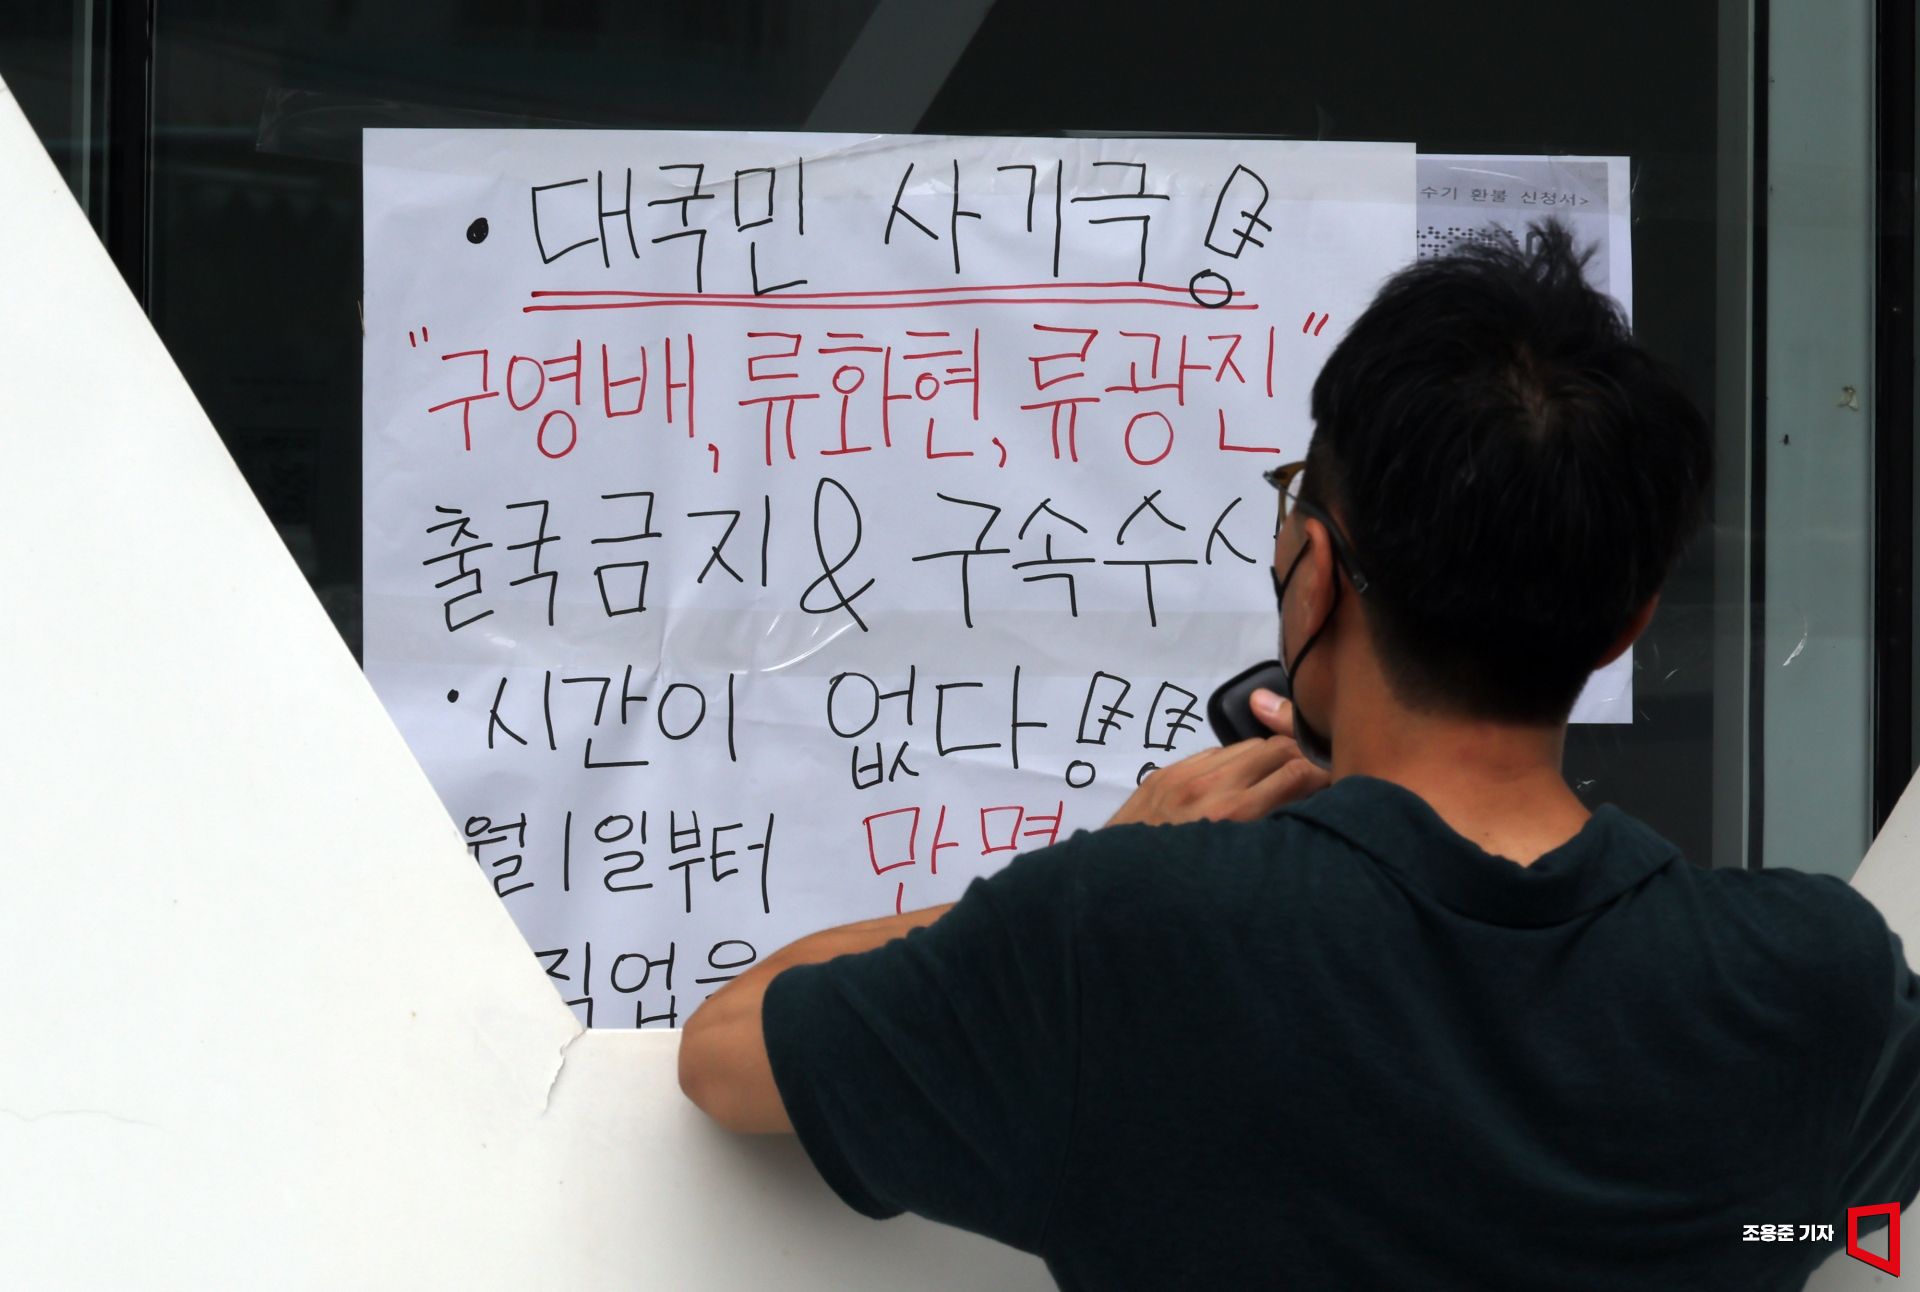 • 대국민 사기극!
수기 환불 신청서>
"구영배, 류화현, 류광진"
출국금지 & 구속수사
• 시간이 없다!!
월 1일부터 만 명
직업을
조용준 기자